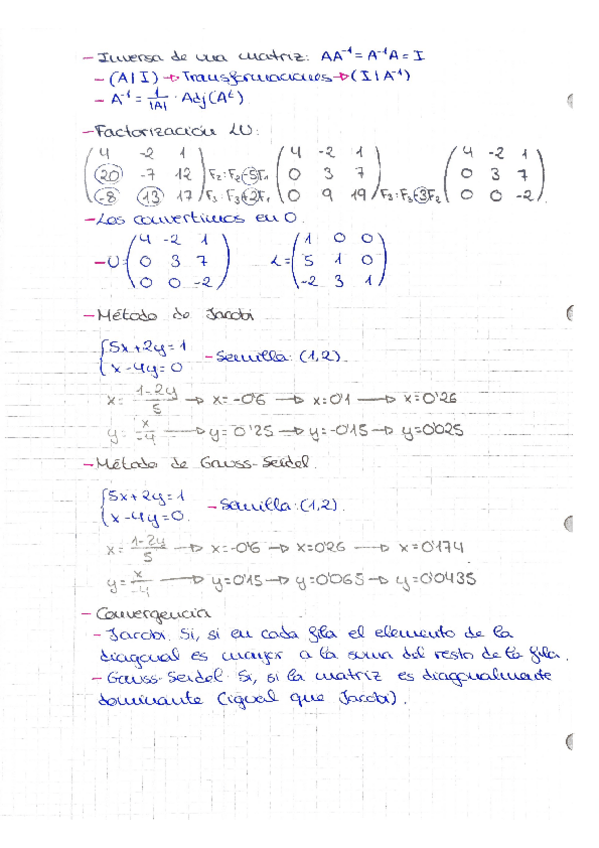 - Inversa de una matriz: AA⁻¹ = A⁻¹A = I
- (A | I) → Transformaciones → (I | A⁻¹)
- A⁻¹ = 1/|A| · Adj(Aᵗ)
- Factorización LU:
( 4 -2 1 ) ( 4 -2 1 ) ( 4 -2 1 )
( 20 -7 12 ) F₂: F₂-5F₁ ( 0 3 7 ) ( 0 3 7 )
( -8 13 17 ) F₃: F₃+2F₁ ( 0 9 19 ) F₃: F₃-3F₂ ( 0 0 -2 )
- Los convertimos en 0.
( 4 -2 1 ) ( 1 0 0 )
- U= ( 0 3 7 ) L= ( 5 1 0 )
( 0 0 -2 ) ( -2 3 1 )
- Método de Jacobi
{ 5x+2y=1
{ x-4y=0 - Semilla: (1,2).
x= 1-2y/5 → x=-0'6 → x=0'1 → x=0'26
y= x/-4 → y=0'25 → y=-0'15 → y=0'025
- Método de Gauss-Seidel.
{ 5x+2y=1
{ x-4y=0. - Semilla: (1,2).
x= 1-2y/5 → x=-0'6 → x=0'26 → x=0'174
y= x/-4 → y=0'15 → y=0'065 → y=0'0435
- Convergencia
- Jacobi: Sí, si en cada fila el elemento de la
diagonal es mayor a la suma del resto de la fila.
- Gauss-Seidel: Sí, si la matriz es diagonalmente
dominante (igual que Jacobi).